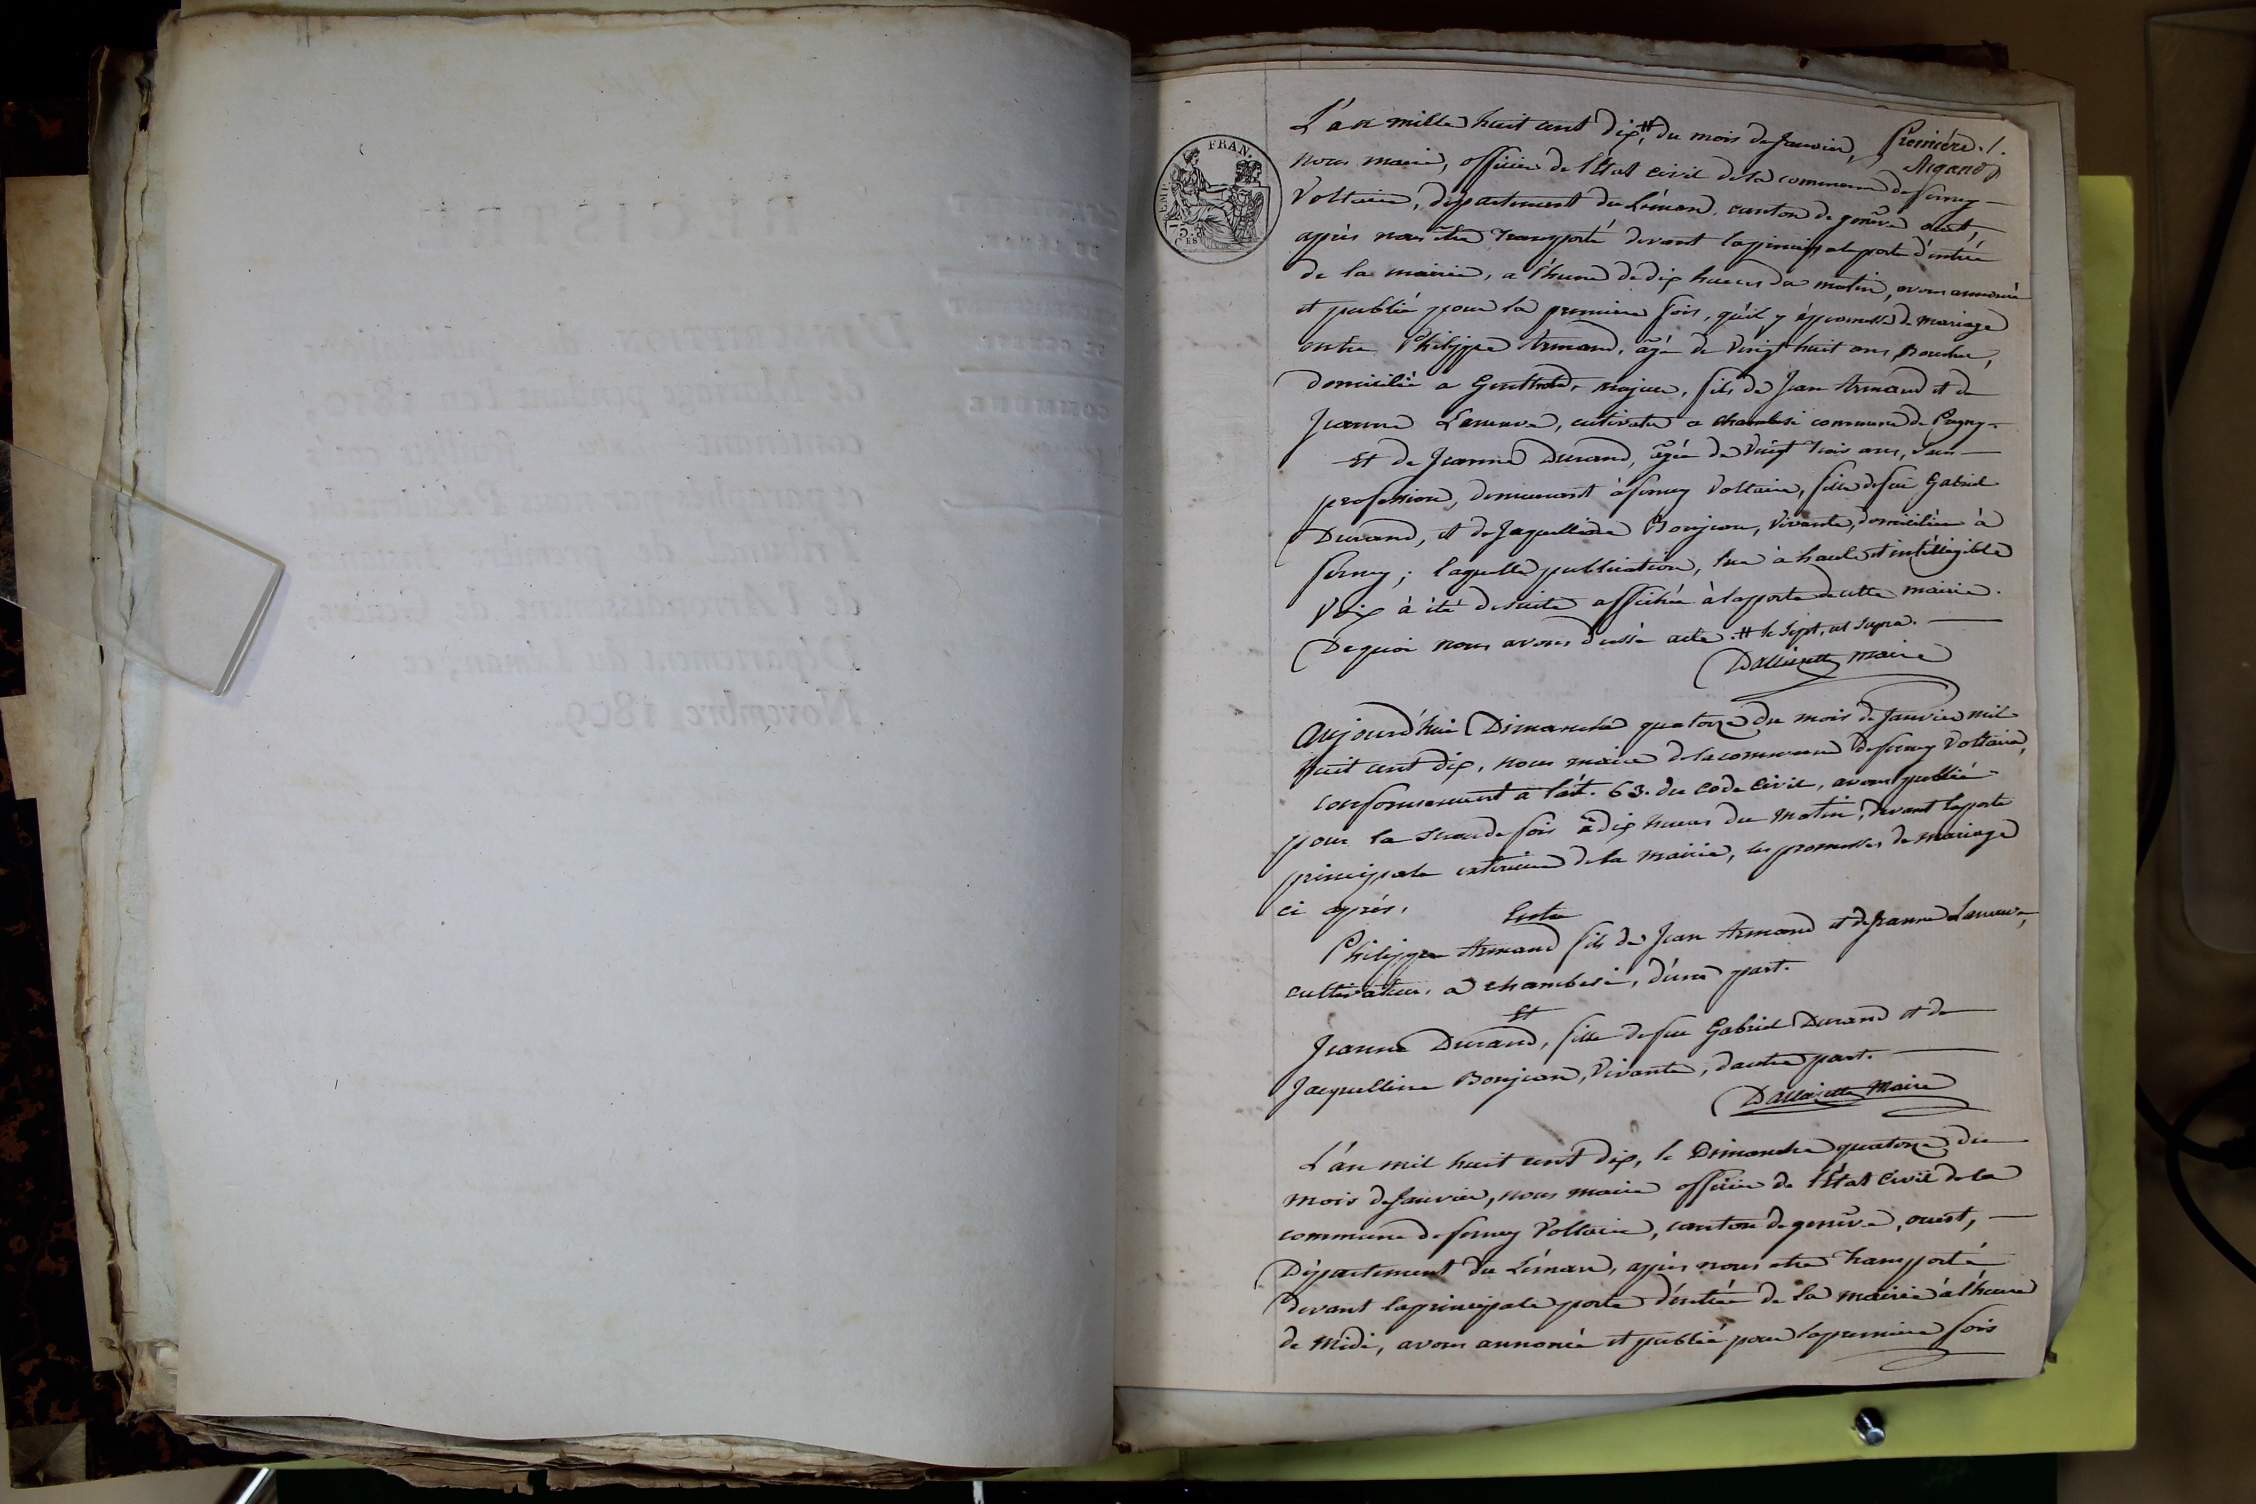 L'an mille huit cent dix,# du mois de Janvier, Première. 1.
Argand
nous maire, officier de l'Etat civil de la commune de ferney
Voltaire, département du Léman, canton de genève ouest,
après nous être transporté devant la principale porte d'entrée
de la mairie, a l'heure de dix heures du matin, avons annoncé
et publié pour la premiere fois, qu'il y à promesse de mariage
entre Philippe Armand, âgé de vingt huit ans, Boucher,
domicilié a Genthod, majeur, fils de Jean Armand et de
Jeanne cultivateur a chambesi commune de Pregny.
Et de Jeanne Durand, âgée de vingt trois ans, sans
profession, demeurant à ferney Voltaire, fille de feu Gabriel
Durand, et de Jaquelline Bonjean, vivante, domiciliée à
ferney; laquelle publication, lue à haute et intélligible
voix à été de suite affichée à la porte de cette mairie.
De quoi nous avons dressé acte. # le sept, ut supra.
Maire
FRAN.
EMP.
75.
CES
Aujourd'hui Dimanche quatorze du mois de Janvier mil
huit cent dix, nous maire de la commune de ferney Voltaire,
conformement a l'art. 63. du code civil, avons publié
pour la seconde fois à dix heures du matin, devant la porte
principale exterieure de la mairie, les promesses de mariage
ci après,
Entre
Philippe Armand fils de Jean Armand et de Jeanne
cultivateur, a chambesi, d'une part.
Et
Jeanne Durand, fille de feu Gabriel Durand et de
Jacquelline Bonjean, vivante, d'autre part.
Maire
L'an mil huit cent dix, le Dimanche quatorze du
mois de Janvier, nous maire officier de l'Etat Civil de la
commune de ferney Voltaire, canton de genève, ouest,
Département du Léman, après nous etre transporté
devant la principale porte d'entrée de la mairie à l'heure
de midi, avons annoncé et publié pour la premiere fois